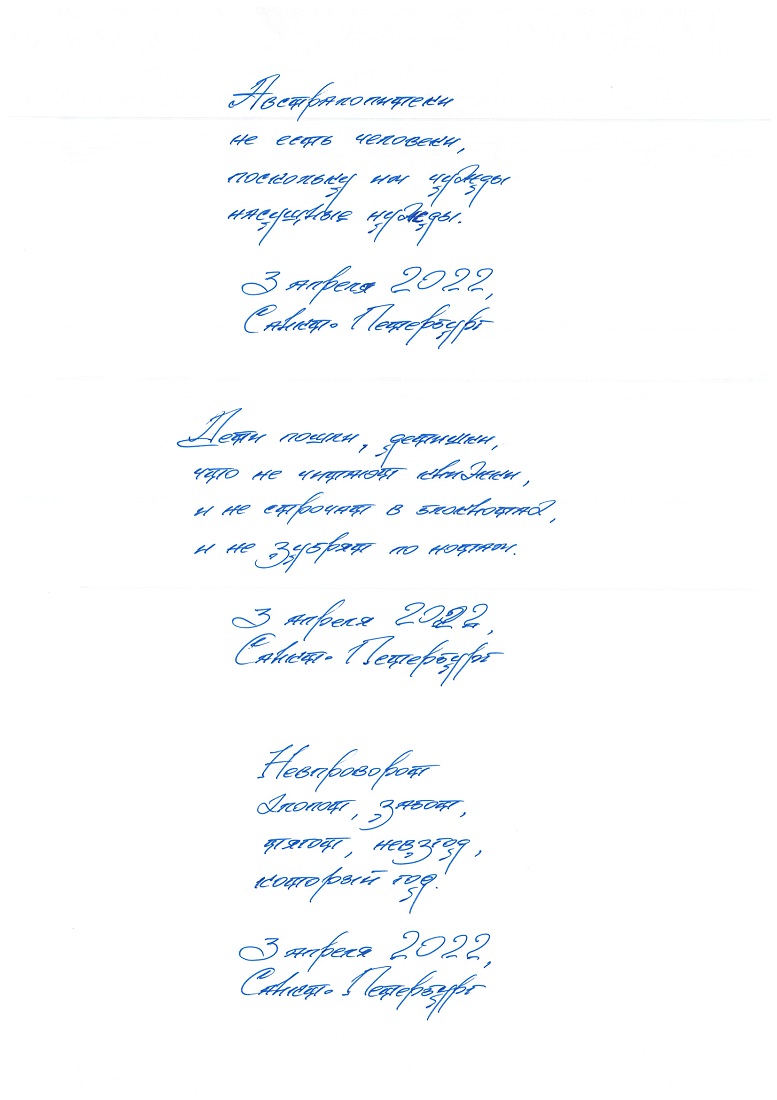 Австралопитеки
не есть человеки,
поскольку им чужды
насущные нужды.
3 апреля 2022,
Санкт-Петербург
Дети пошли, детишки,
что не читают книжки,
и не строчат в блокнотах,
и не зубрят по нотам.
3 апреля 2022,
Санкт-Петербург
Невпроворот
хлопот, забот,
тягот, невзгод,
который год.
3 апреля 2022,
Санкт-Петербург